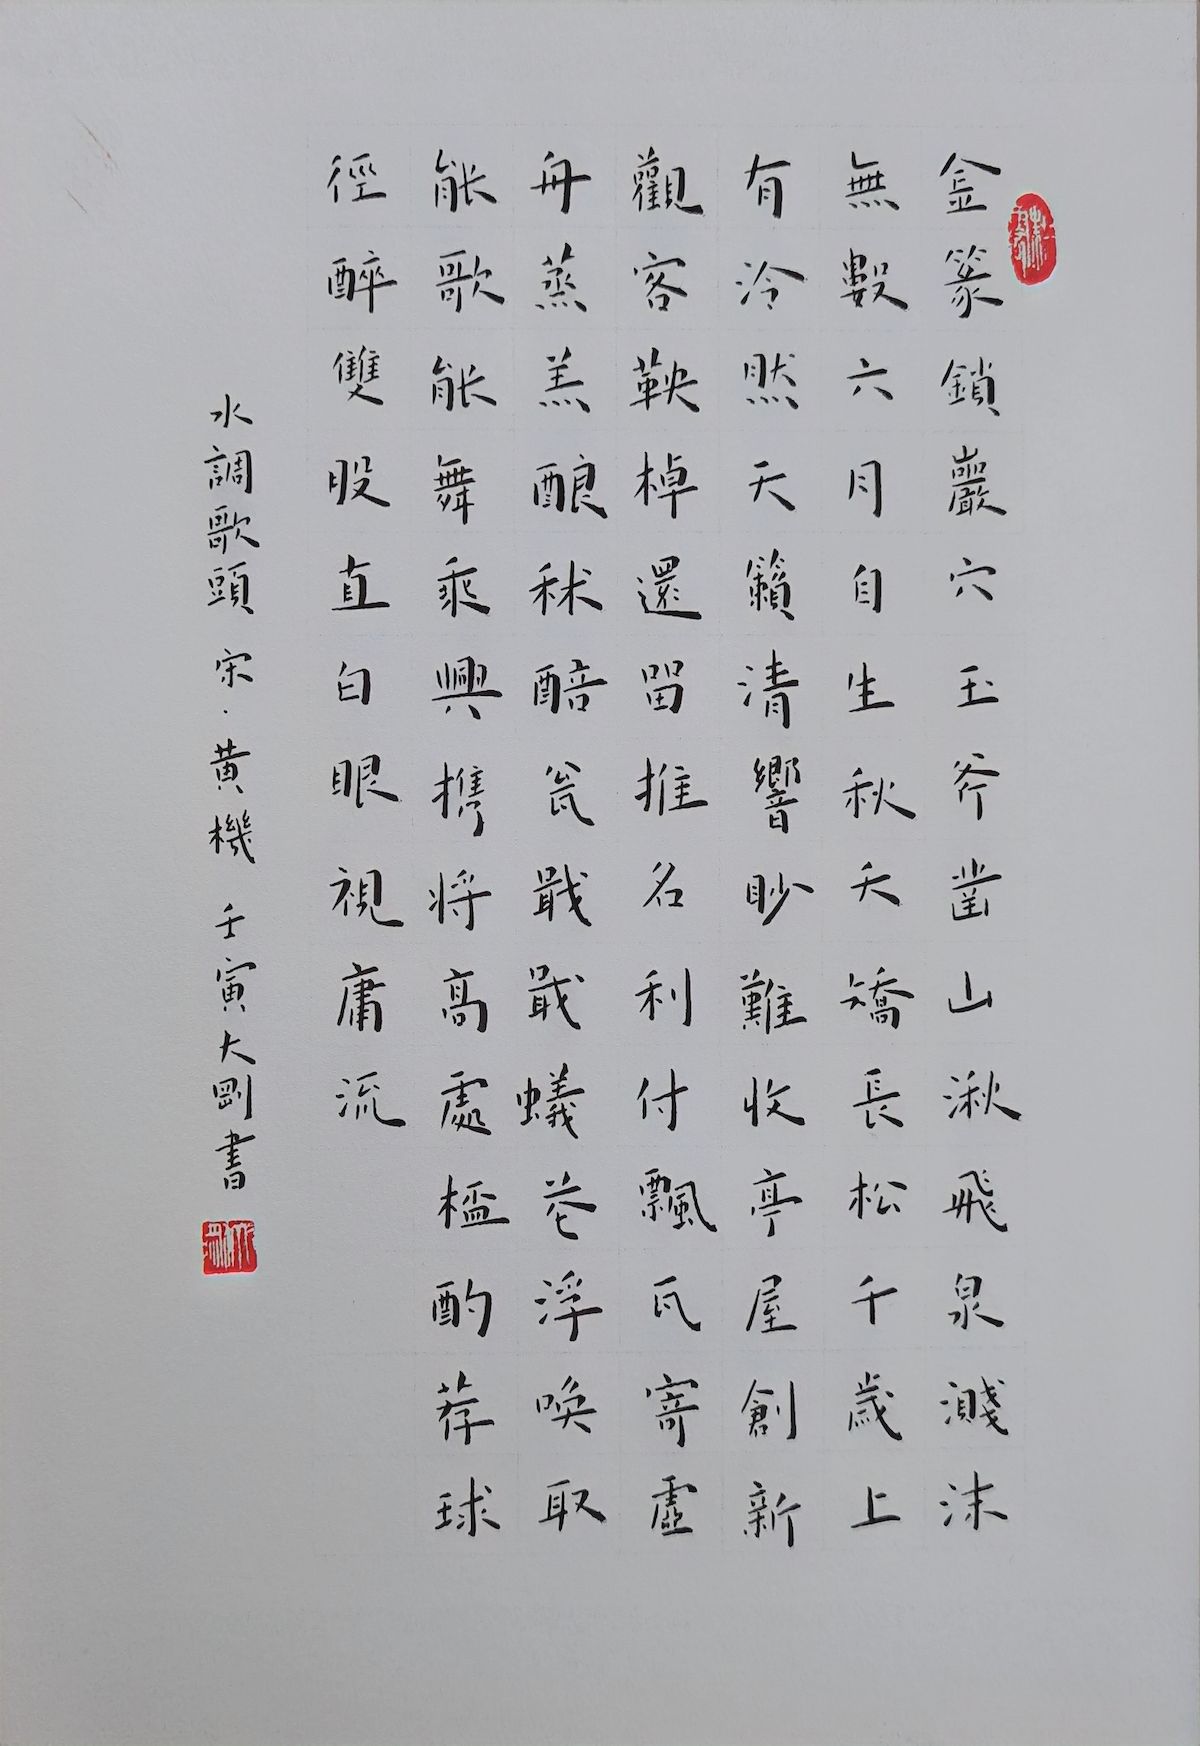 金篆鎖巖穴玉斧鑿山湫飛泉濺沫
無數六月自生秋夭矯長松千歲上
有泠然天籟清響眇難收亭屋創新
觀客鞅棹還留推名利付飄瓦寄虛
舟蒸羔釀秫醅瓮戢戢蟻花浮喚取
能歌能舞乘興攜將高處榼酌荐球
徑醉雙股直白眼視庸流
水調歌頭 宋·黃機 壬寅大剛書